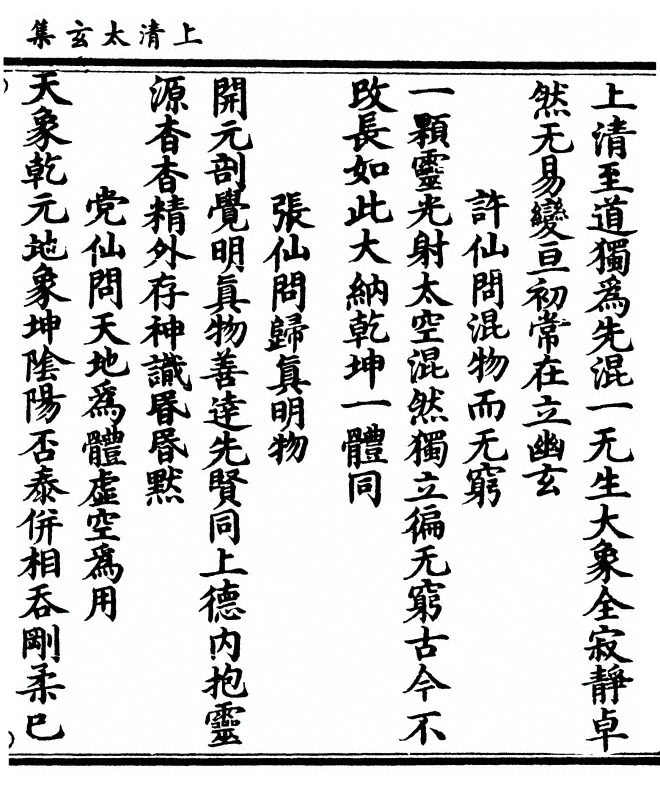 上清太玄集
上清至道獨為先混一无生大象全寂靜卓
然无易變亘初常在立幽玄
許仙問混物而无窮
一顆靈光射太空混然獨立徧无窮古今不
改長如此大納乾坤一體同
張仙問歸真明物
開元剖覺明真物善達先賢同上德內抱靈
源杳杳精外存神識昬昬默
党仙問天地為體虛空為用
天象乾元地象坤陰陽否泰併相吞剛柔巳